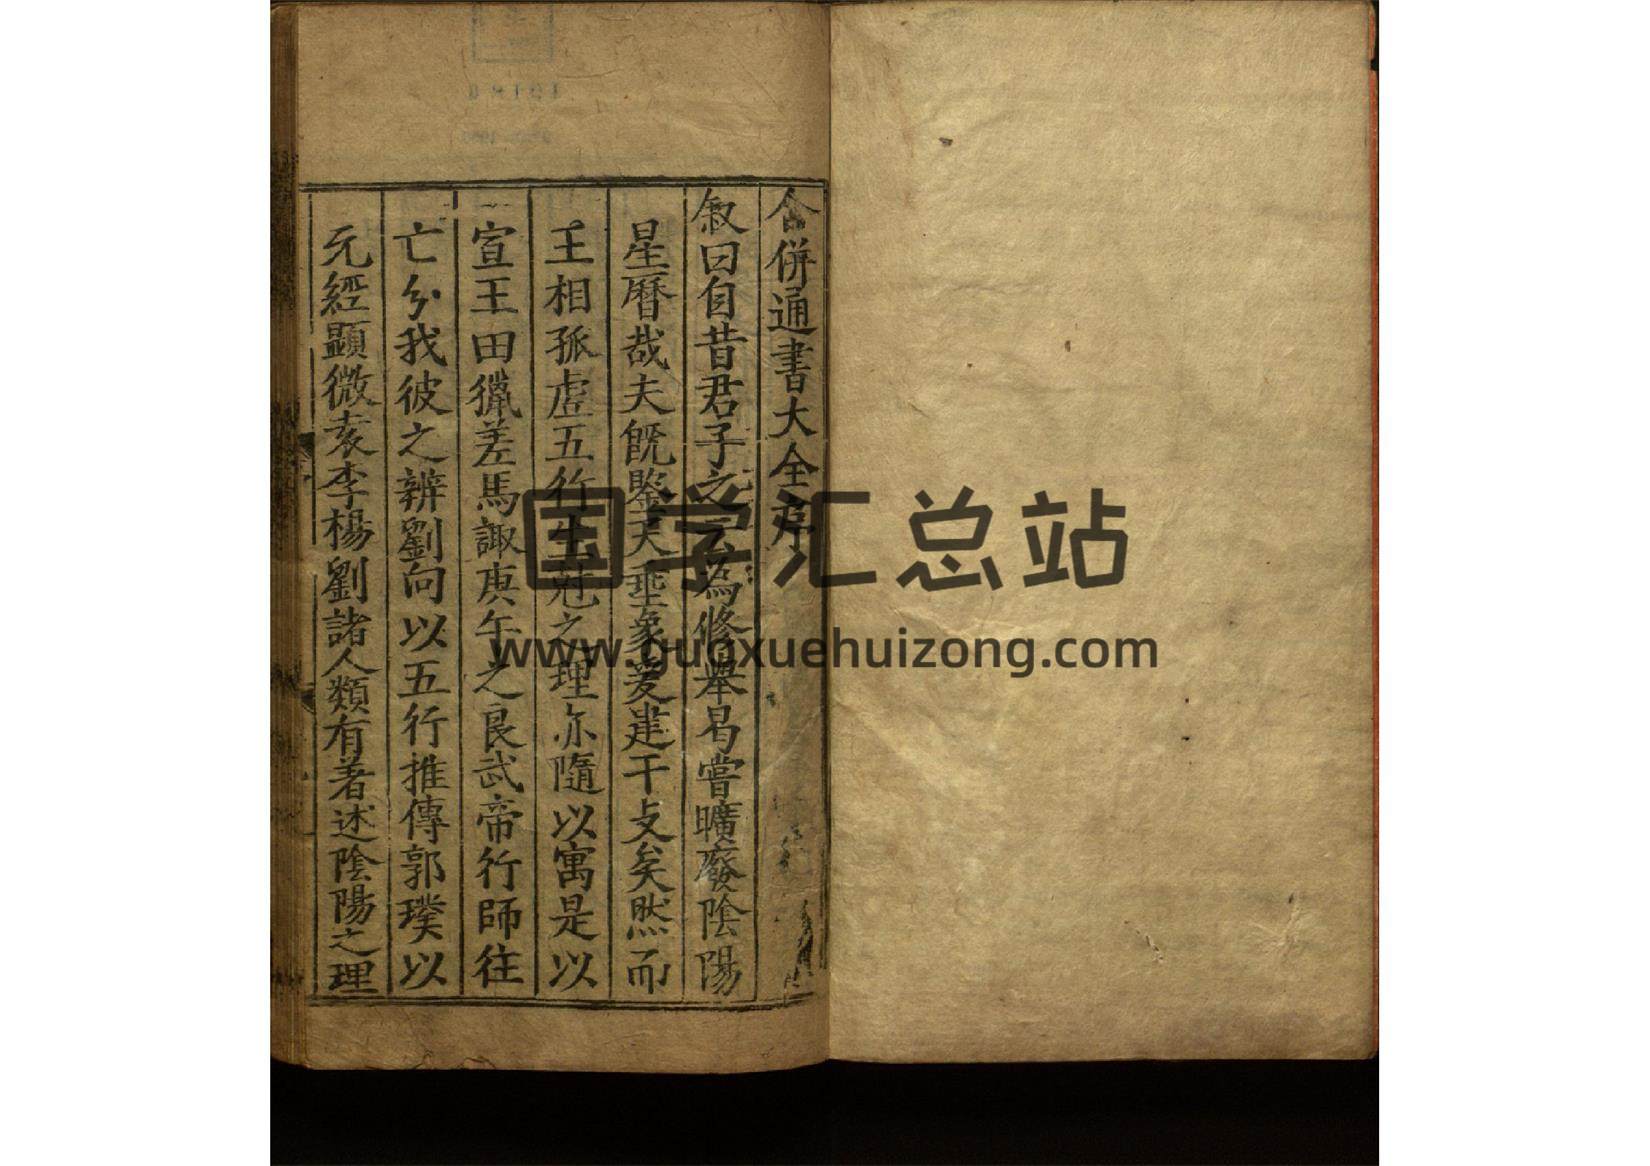 合併通書大全序
叙曰自昔君子之云為修舉曷嘗曠廢陰陽
星曆哉夫旣鑒天垂象爰建干支矣然而
王相孤虛五行生尅之理亦隨以寓是以
宣王田獵差馬諏庚午之良武帝行師往
亡分我彼之辨劉向以五行推傳郭璞以
元經顯微袁李楊劉諸人類有著述陰陽之理
国学汇总站
www.guoxuehuizong.com